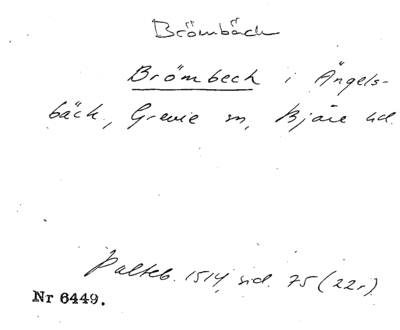 Brömbäck
Brömbeck i Ängels-
bäck, Grevie sn, Bjäre hd.
Palteb. 1514, sid. 75 (22r).
Nr 6449.